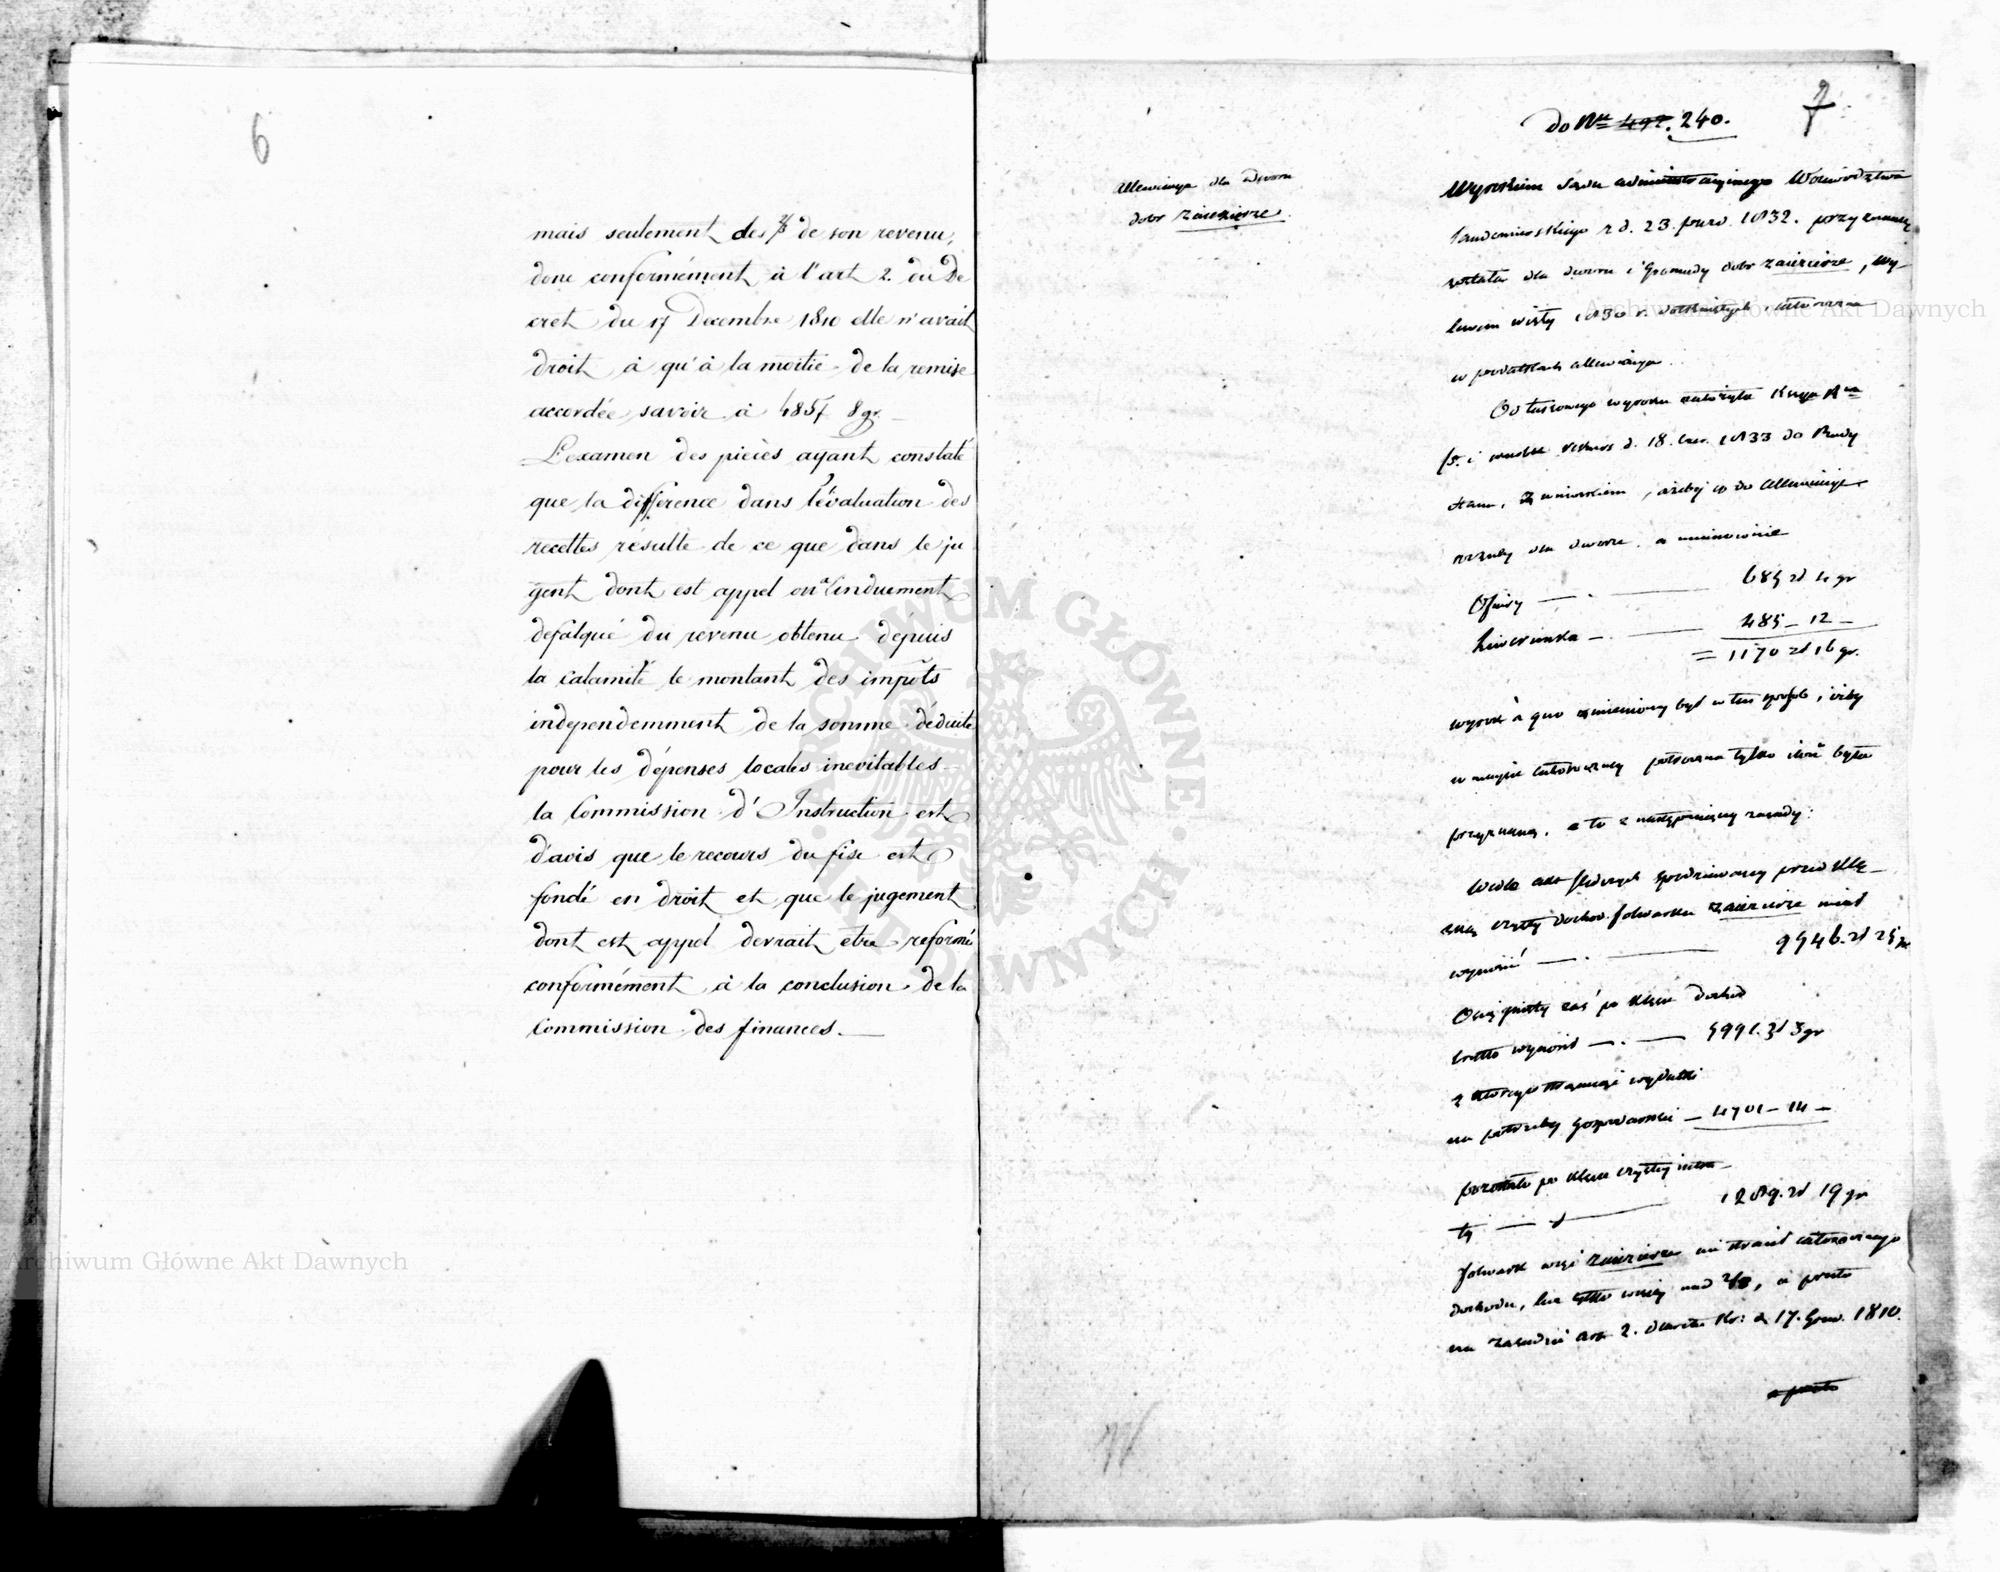 6
mais seulement des 2/3 de son revenu,
donc conformément à l'art 2. du De
cret du 17 Decembre 1810 elle n'avait
droit à qu'à la moitié de la remise
accordée savoir à 485f 8gr.
L'examen des pièces ayant constaté
que la différence dans l'évaluation des
recettes résulte de ce que dans le ju
gent dont est appel on a induement
defalqué du revenu obtenu dépuis
la calamité le montant des impôts
independemment de la somme déduite
pour les dépenses locales inevitables
la Commission d'Instruction est
d'avis que le recours du fisc est
fondé en droit et que le jugement
dont est appel devrait etre reformé
conformément à la conclusion de la
Commission des finances.
7
do Nr 492. 240.
Allewiacya dla Dworu
dobr Zawierze.
Wyrokiem Sądu administracyjnego Woiewództwa
Sandomirskiego z d. 23. 1832. przyznaną
została dla dworu i Gromady dobr Zawierze, wy-
lewem wisły 1830 r. dotkniętych, całoroczna
w podatkach allewiacya.
Od takowego wyroku założyła Kssya
d. 18. 1833 do Rady
Stanu, z wnioskiem, ażeby co do Allewiacyi
dla dworu, a mianowicie
Ofiary 685 zł 4 gr
Liwerunku 485 – 12 –
= 1170 zł 16 gr.
wyrok à quo zmieniony był w ten sposób, iżby
w mieysce całoroczney połroczna tylko była
przyznaną, a to z następuiącey zasady:
Wedle akt spodziewany przed klę-
ską czysty dochod folwarku Zawierze miał
wynosić 9946. zł 25 gr
Osiągnięty zaś po klęsce dochod
brutto wynosił 5991. zł 3 gr
z ktorego strąciwszy wydatki
na potrzeby gospodarskie – 4701 – 14 –
pozostało po klęsce czystej intra-
ty 1289. zł 19 gr
folwark więc Zawierze nie stracił całorocznego
dochodu, lecz tylko więcej nad 2/3, a przeto
na zasadzie art 2. dekretu Kr: z 17. Grud. 1810.
a przeto
Archiwum Główne Akt Dawnych
Archiwum Główne Akt Dawnych
ARCHIWUM GŁÓWNE AKT DAWNYCH